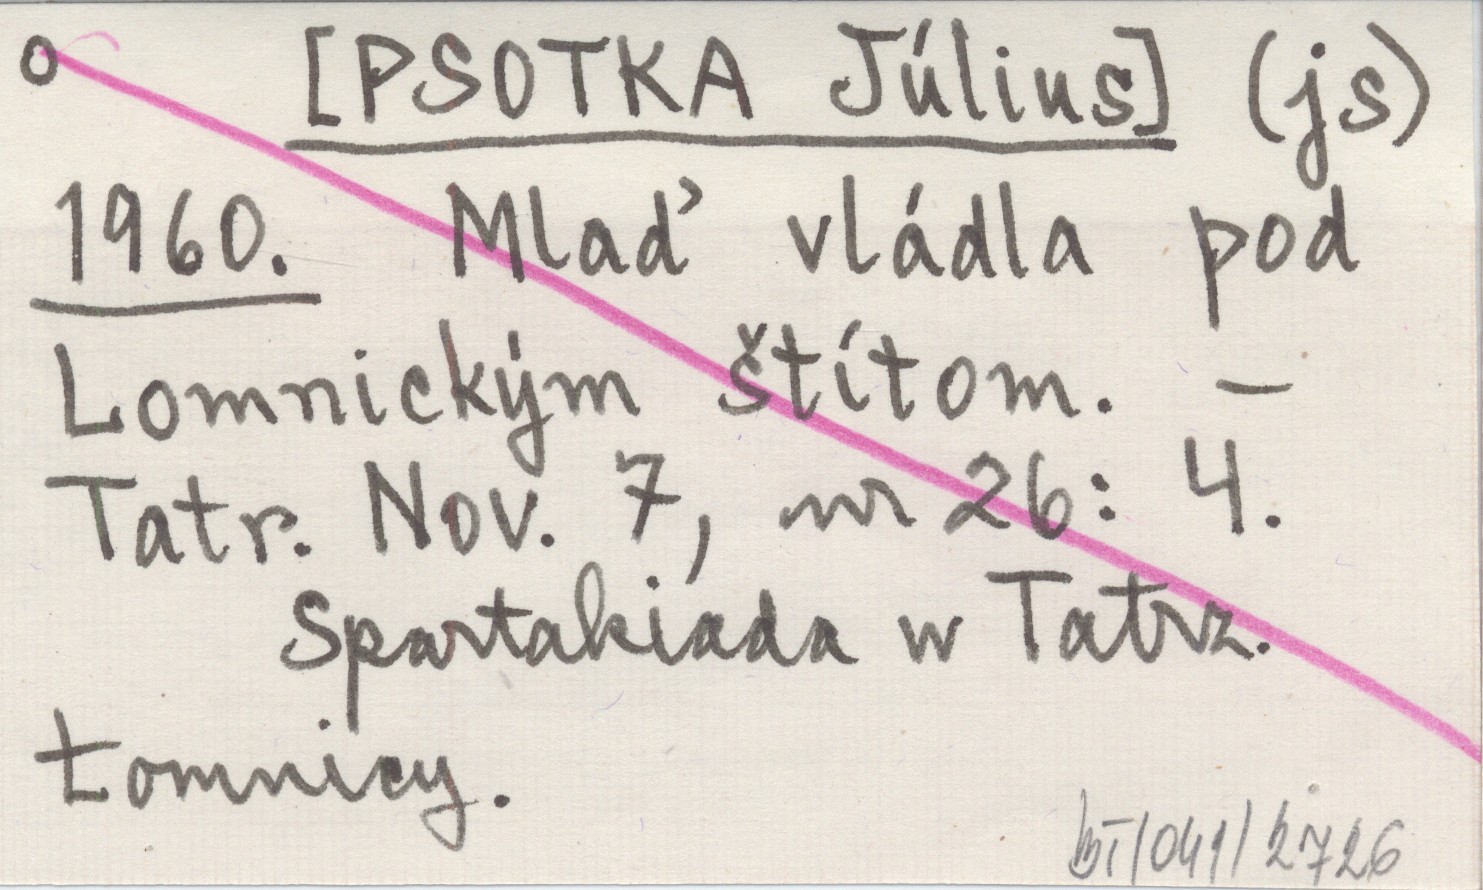 o [PSOTKA Július] (js)
1960. Mlaď vládla pod
Lomnickým štítom. –
Tatr. Nov. 7, nr 26: 4.
Spartakiada w Tatrz.
Łomnicy.
BT/041/2726